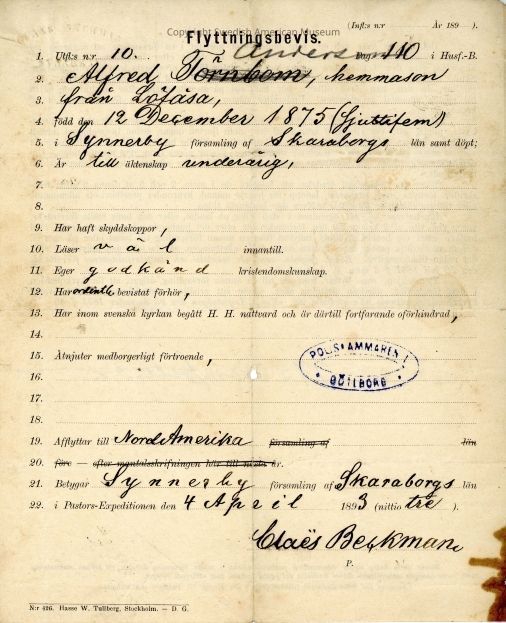 Copyright Swedish American Museum
(Infl:s n:r År 189 ).
Flyttningsbevis.
1. Utfl:s n:r 10. Anderson Pag. 110 i Husf.-B.
2. Alfred Törnbom, hemmason
3. från Löfåsa,
4. född den 12 December 1875 (sjuttifem)
5. i Synnerby församling af Skaraborgs län samt döpt;
6. Är till äktenskap underårig,
7.
8.
9. Har haft skyddskoppor,
10. Läser väl innantill.
11. Eger godkänd kristendomskunskap.
12. Har ordentl. bevistat förhör,
13. Har inom svenska kyrkan begått H. H. nattvard och är därtill fortfarande oförhindrad,
14.
15. Åtnjuter medborgerligt förtroende,
16.
POLISKAMMAREN I
GÖTEBORG
17.
18.
19. Afflyttar till Nord Amerika församling af län
20. före — efter mantalsskrifningen här till nästa år.
21. Betygar Synnerby församling af Skaraborgs län
22. i Pastors-Expeditionen den 4 April 1893 (nittio tre ).
Claës Beckman
P.
N:r 426. Hasse W. Tullberg, Stockholm. — D. G.